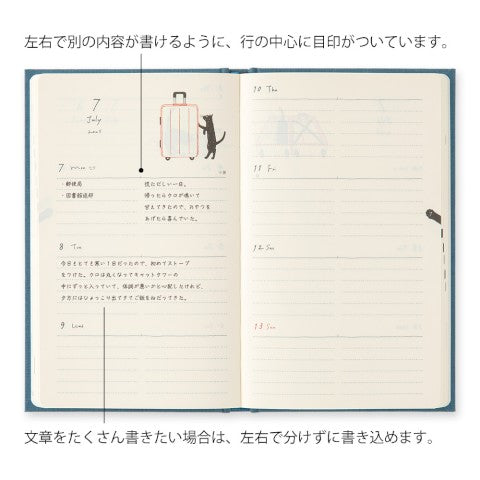 左右で別の内容が書けるように、行の中心に目印がついています。
7
July
7 Mon
・郵便局
・図書館返却
慌ただしい一日。
帰ったらクロが鳴いて
甘えてきたので、おやつを
あげたら喜んでいた。
8 Tue
今日もとても寒い1日だったので、初めてストーブ
をつけた。クロは丸くなってキャットタワーの
中にずっと入っていて、体調が悪いかと心配したけれど、
夕方にはひょっこり出てきてご飯をねだってきた。
9 Wed
10 Thu
11 Fri
12 Sat
13 Sun
文章をたくさん書きたい場合は、左右で分けずに書き込めます。